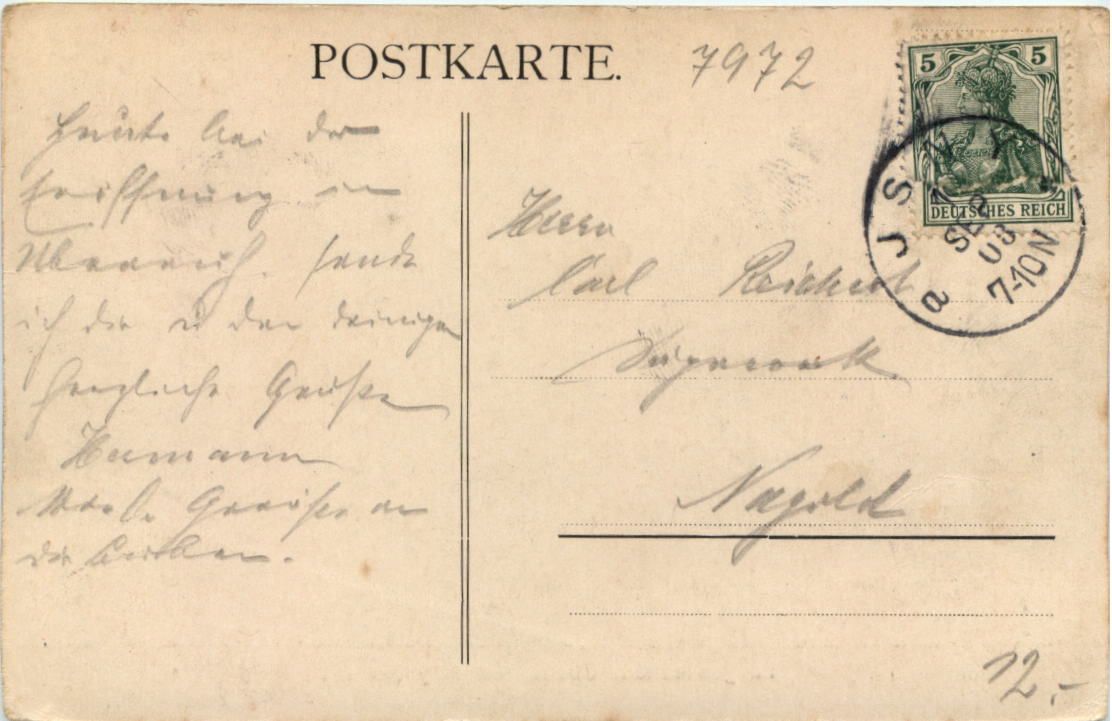 POSTKARTE.
7972
5 5
DEUTSCHES REICH
JSNY
SEP
08
7-10N
a
Heute bei der
Eröffnung
sende
ich dir u den deinigen
herzliche Grüße
Hermann
Viele Grüße an
die
Herrn
Carl Reichert
Sägewerk
Nagold
12.-